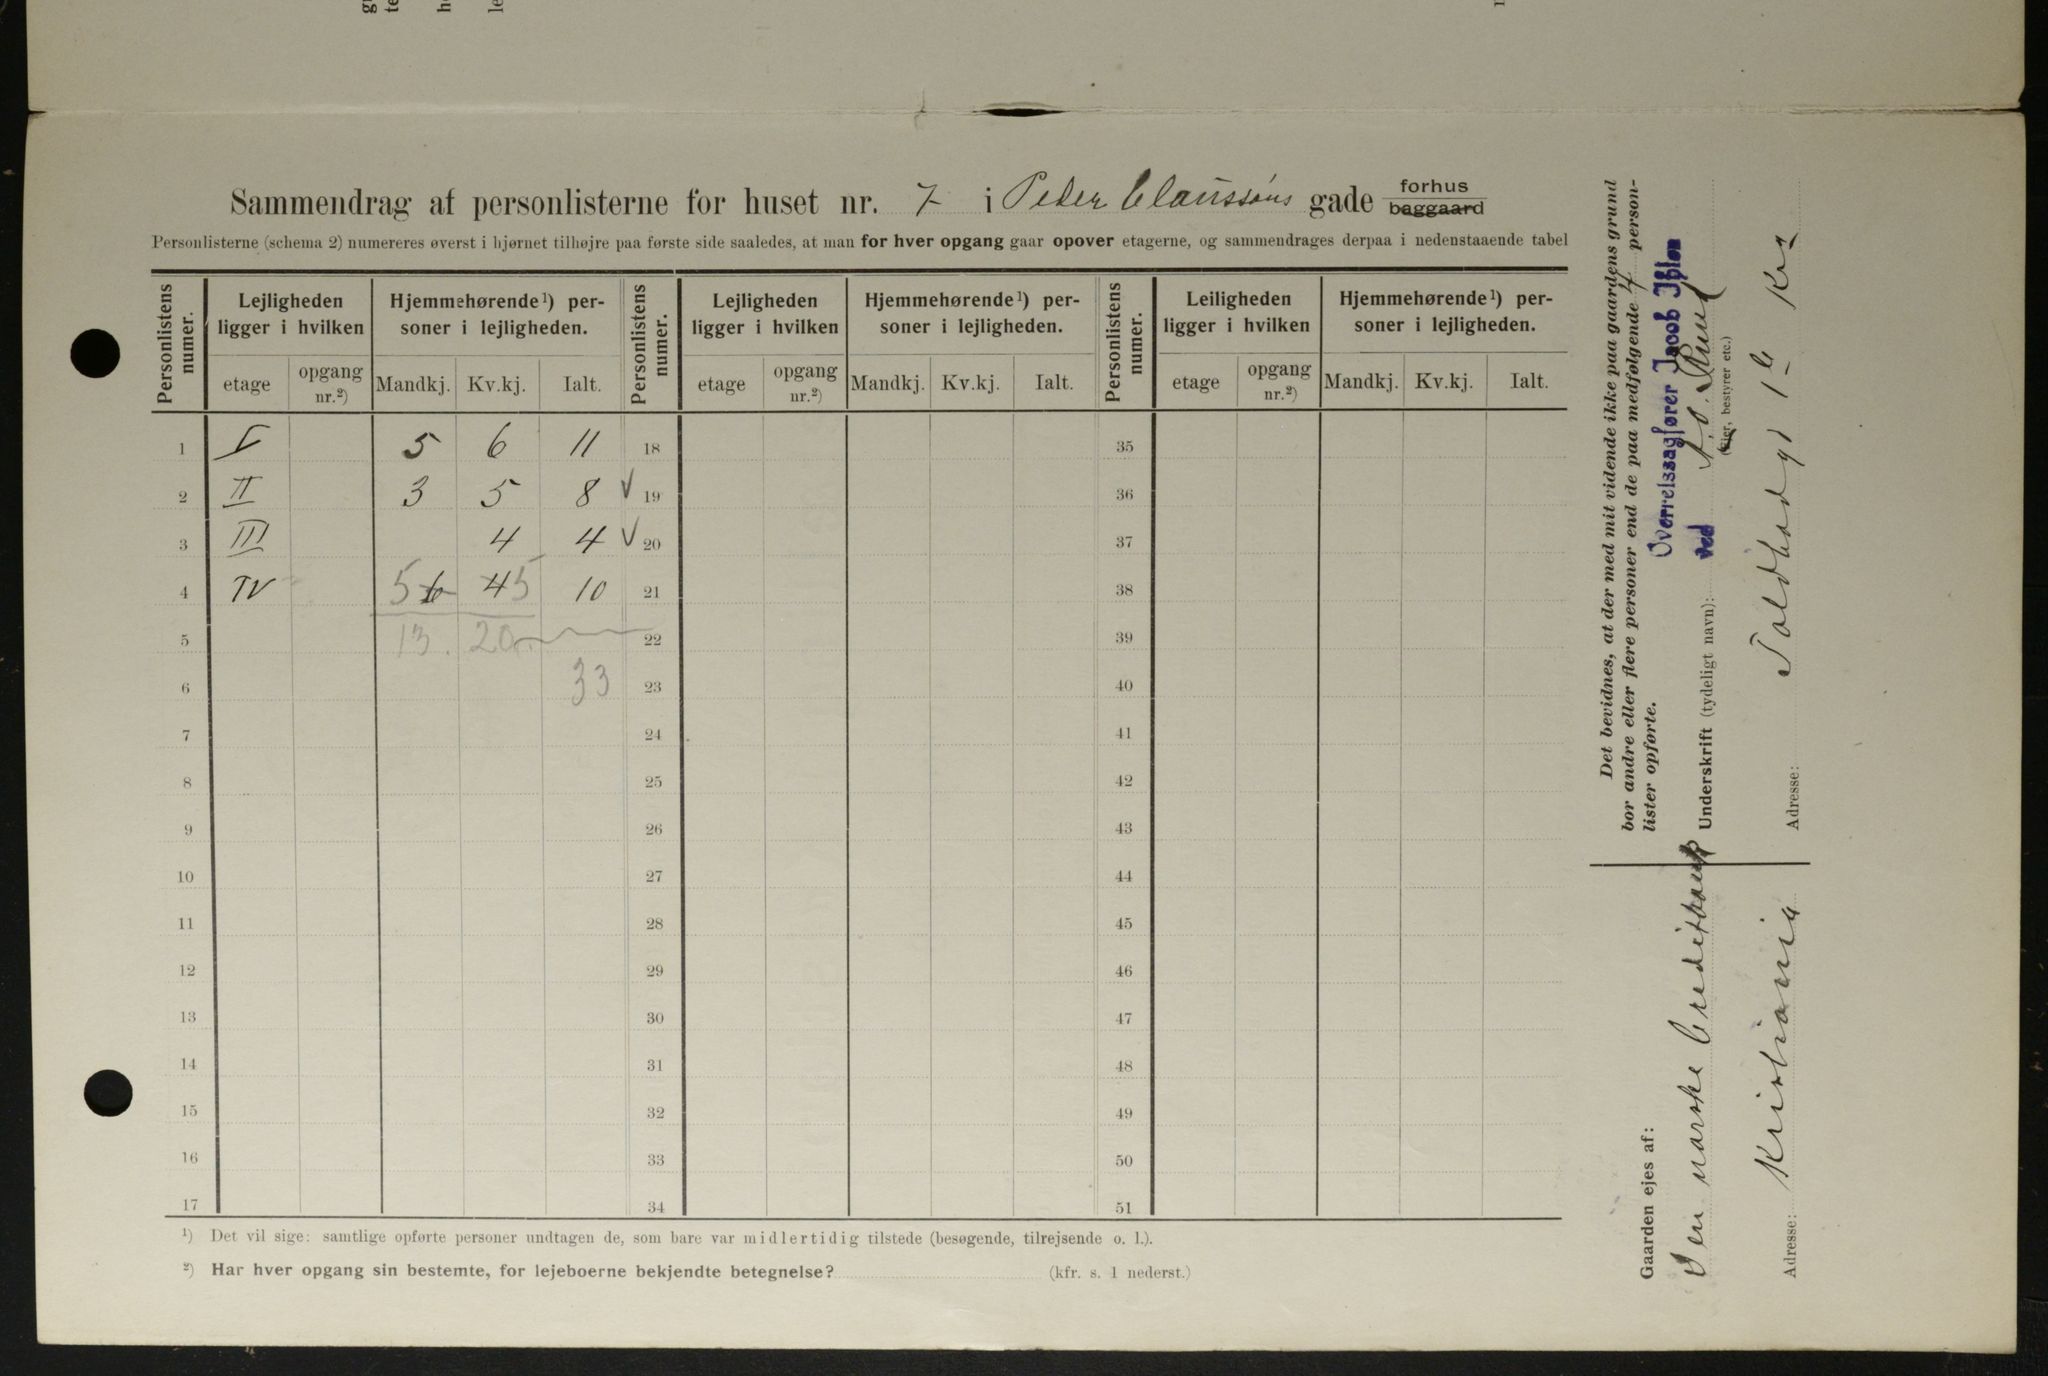 Sammendrag af personlisterne for huset nr. 7 i Peder Claussøns gade forhus baggaard
Personlisterne (schema 2) numereres øverst i hjørnet tilhøjre paa første side saaledes, at man for hver opgang gaar opover etagerne, og sammendrages derpaa i nedenstaaende tabel
Personlistens numer. Lejligheden ligger i hvilken Hjemmehørende¹) personer i lejligheden. Personlistens numer. Lejligheden ligger i hvilken Hjemmehørende¹) personer i lejligheden. Personlistens numer. Leiligheden ligger i hvilken Hjemmehørende¹) personer i lejligheden.
etage opgang nr.²) Mandkj. Kv.kj. Ialt. etage opgang nr.²) Mandkj. Kv.kj. Ialt. etage opgang nr.²) Mandkj. Kv.kj. Ialt.
1 I 5 6 11 18 35
2 II 3 5 8 √ 19 36
3 III 4 4 √ 20 37
4 IV 5 6 4 5 10 21 38
5 13. 20. 22 39
6 33 23 40
7 24 41
8 25 42
9 26 43
10 27 44
11 28 45
12 29 46
13 30 47
14 31 48
15 32 49
16 33 50
17 34 51
¹) Det vil sige: samtlige opførte personer undtagen de, som bare var midlertidig tilstede (besøgende, tilrejsende o. l.).
²) Har hver opgang sin bestemte, for lejeboerne bekjendte betegnelse? (kfr. s. 1 nederst.)
Det bevidnes, at der med mit vidende ikke paa gaardens grund
bor andre eller flere personer end de paa medfølgende 4 person-
lister opførte.
Overretssagfører Jacob Ihlen
ved
Underskrift (tydeligt navn):
(Eier, bestyrer etc.)
Adresse: Toldbodgt 1 b Kra
Gaarden ejes af:
Den norske Creditbank
Adresse: Kristiania